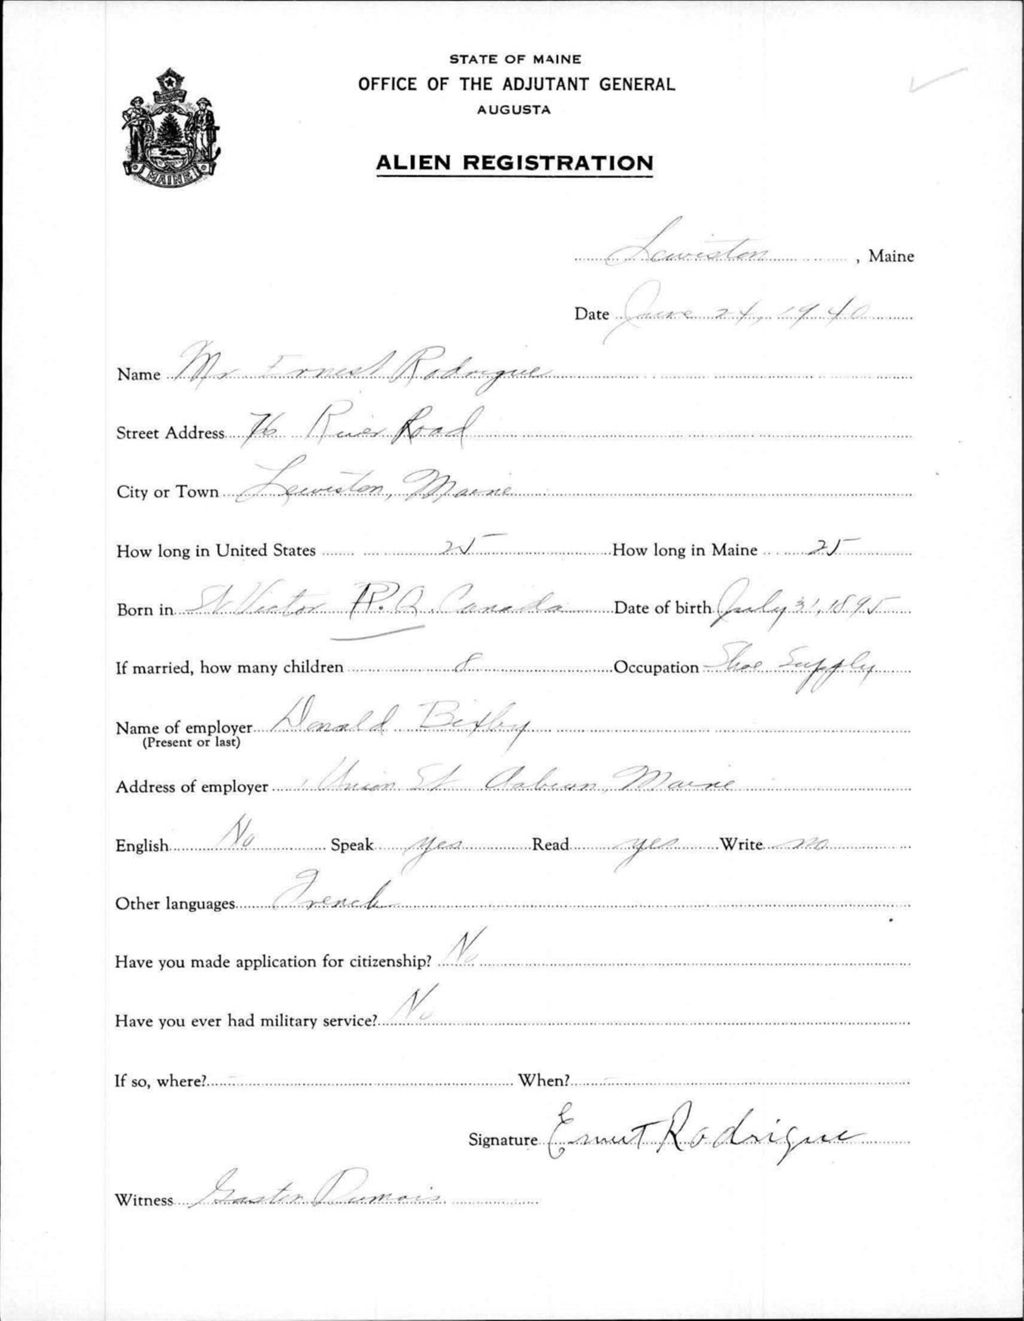 STATE OF MAINE
OFFICE OF THE ADJUTANT GENERAL
AUGUSTA
ALIEN REGISTRATION
MAINE
Lewiston, Maine
Date June 24, 1940
Name Mr Ernest Rodrigue
Street Address 76 River Road
City or Town Lewiston, Maine
How long in United States 25 How long in Maine 25
Born in St Victor P.Q. Canada Date of birth July 31, 1895
If married, how many children 8 Occupation Shoe Supply
Name of employer Donald Bixby
(Present or last)
Address of employer Union St Auburn, Maine
English No Speak yes Read yes Write no
Other languages French
Have you made application for citizenship? No
Have you ever had military service? No
If so, where? - When? -
Signature Ernest Rodrigue
Witness Gaston Dumais